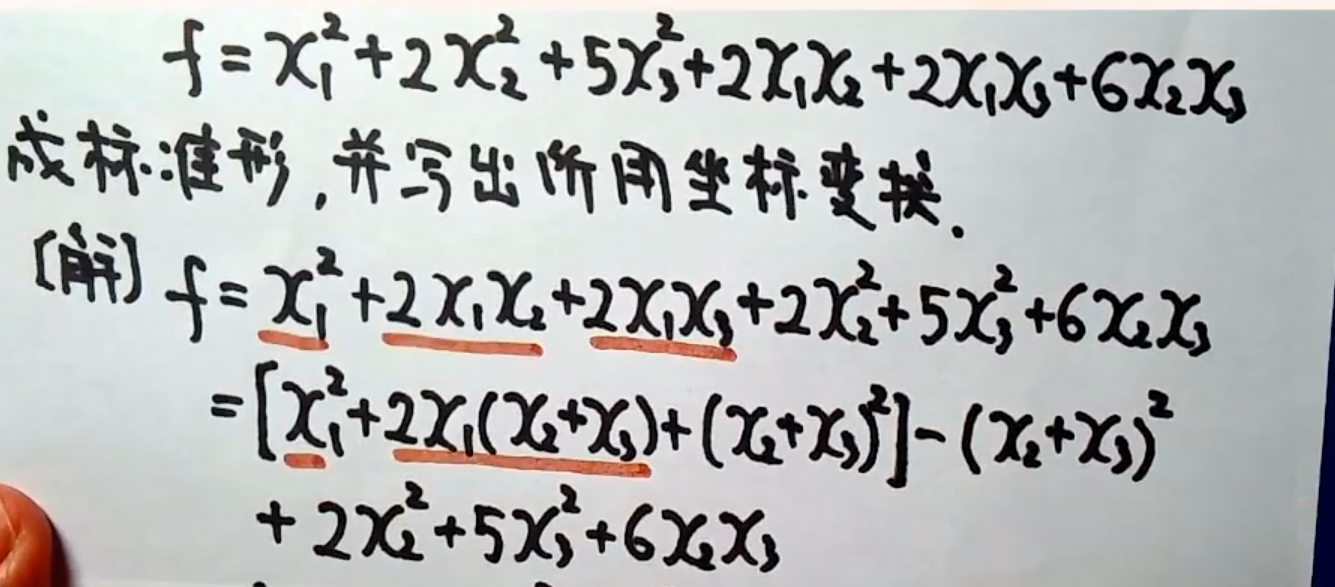 f = x₁² + 2x₂² + 5x₃² + 2x₁x₂ + 2x₁x₃ + 6x₂x₃
成标准形,并写出所用坐标变换.
[解] f = x₁² + 2x₁x₂ + 2x₁x₃ + 2x₂² + 5x₃² + 6x₂x₃
= [x₁² + 2x₁(x₂+x₃) + (x₂+x₃)²] - (x₂+x₃)²
+ 2x₂² + 5x₃² + 6x₂x₃